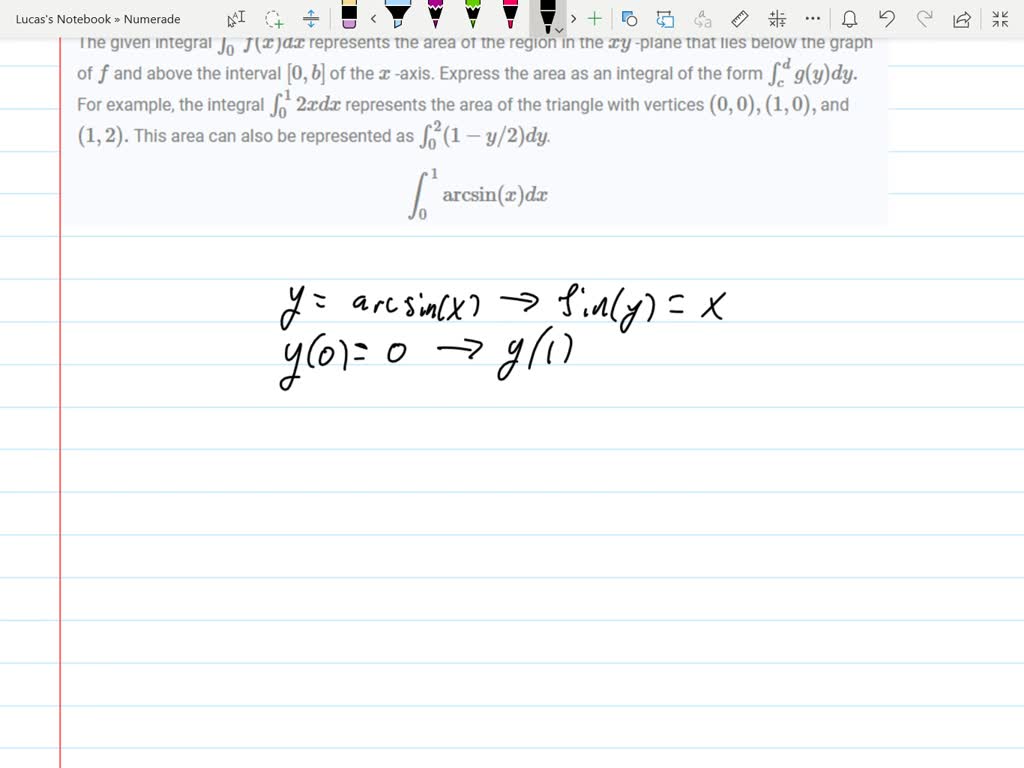 Lucas's Notebook » Numerade
The given integral ∫₀ f(x)dx represents the area of the region in the xy -plane that lies below the graph
of f and above the interval [0, b] of the x -axis. Express the area as an integral of the form ∫_c^d g(y)dy.
For example, the integral ∫₀¹ 2xdx represents the area of the triangle with vertices (0, 0), (1, 0), and
(1, 2). This area can also be represented as ∫₀²(1 − y/2)dy.
∫₀¹ arcsin(x)dx
y = arcsin(x) → sin(y) = x
y(0) = 0 → y(1)